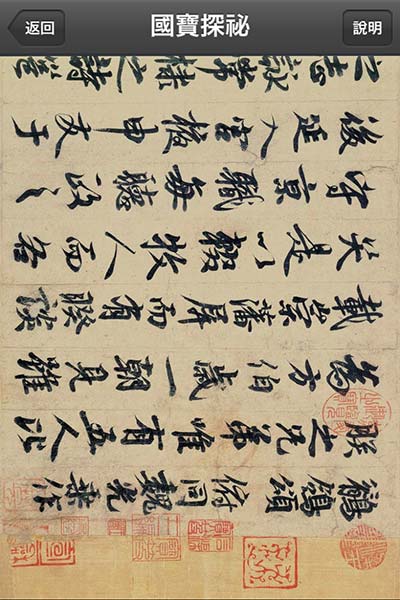 返回
國寶探祕
說明
鶺鴒頌 俯同魏光乘作
朕之兄弟唯有五人比
為方伯歲一朝見雖
載崇藩屏而有睽談
笑是以輟牧人而各
守京職每聽政之
後延入宮掖申友于
之志詠常棣之詩邕